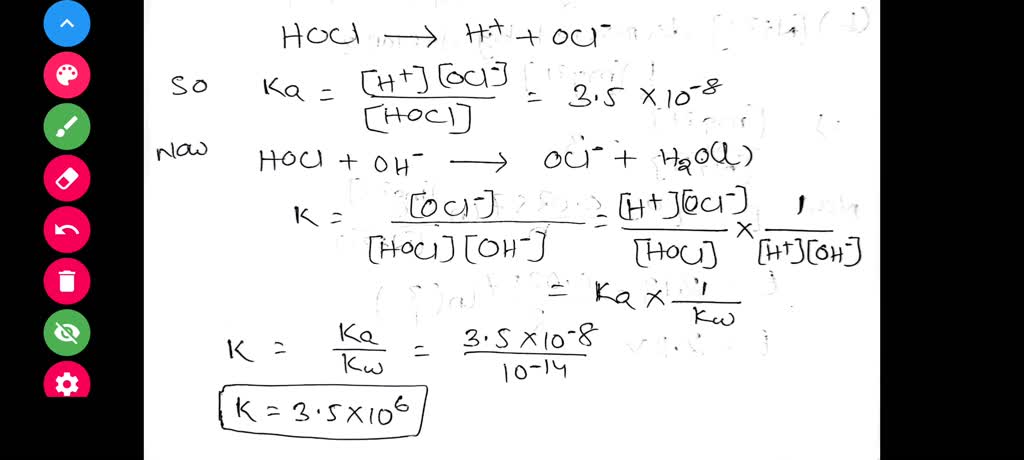 HOCl → H⁺ + OCl⁻
So Ka = [H⁺][OCl⁻] / [HOCl] = 3.5 × 10⁻⁸
Now HOCl + OH⁻ → OCl⁻ + H₂O(l)
K = [OCl⁻] / [HOCl][OH⁻] = [H⁺][OCl⁻] / [HOCl] × 1 / [H⁺][OH⁻]
= Ka × 1 / Kw
K = Ka / Kw = 3.5 × 10⁻⁸ / 10⁻¹⁴
K = 3.5 × 10⁶